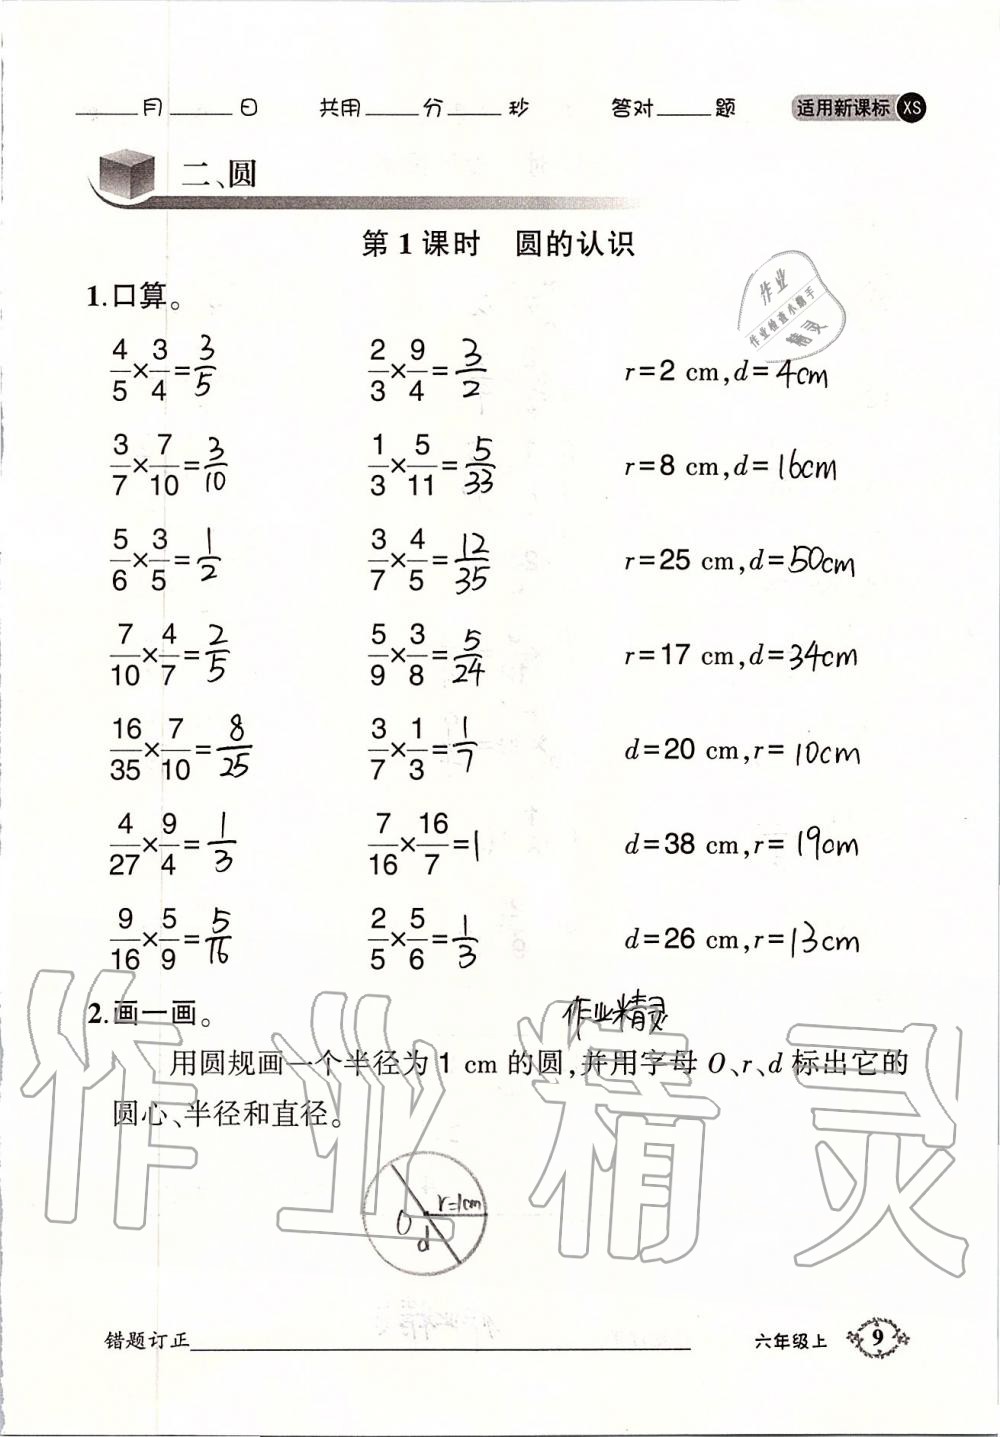 ___月___日 共用___分___秒 答对___题 适用新课标 XS
二、圆
第1课时 圆的认识
作业
作业检查小助手
精灵
1.口算。
4/5×3/4=3/5 2/3×9/4=3/2 r=2 cm,d=4cm
3/7×7/10=3/10 1/3×5/11=5/33 r=8 cm,d=16cm
5/6×3/5=1/2 3/7×4/5=12/35 r=25 cm,d=50cm
7/10×4/7=2/5 5/9×3/8=5/24 r=17 cm,d=34cm
16/35×7/10=8/25 3/7×1/3=1/7 d=20 cm,r=10cm
4/27×9/4=1/3 7/16×16/7=1 d=38 cm,r=19cm
9/16×5/9=5/16 2/5×5/6=1/3 d=26 cm,r=13cm
2.画一画。 作业精灵
用圆规画一个半径为1 cm的圆,并用字母O、r、d标出它的
圆心、半径和直径。
作业精灵
r=1cm
O
d
错题订正___ 六年级上 9